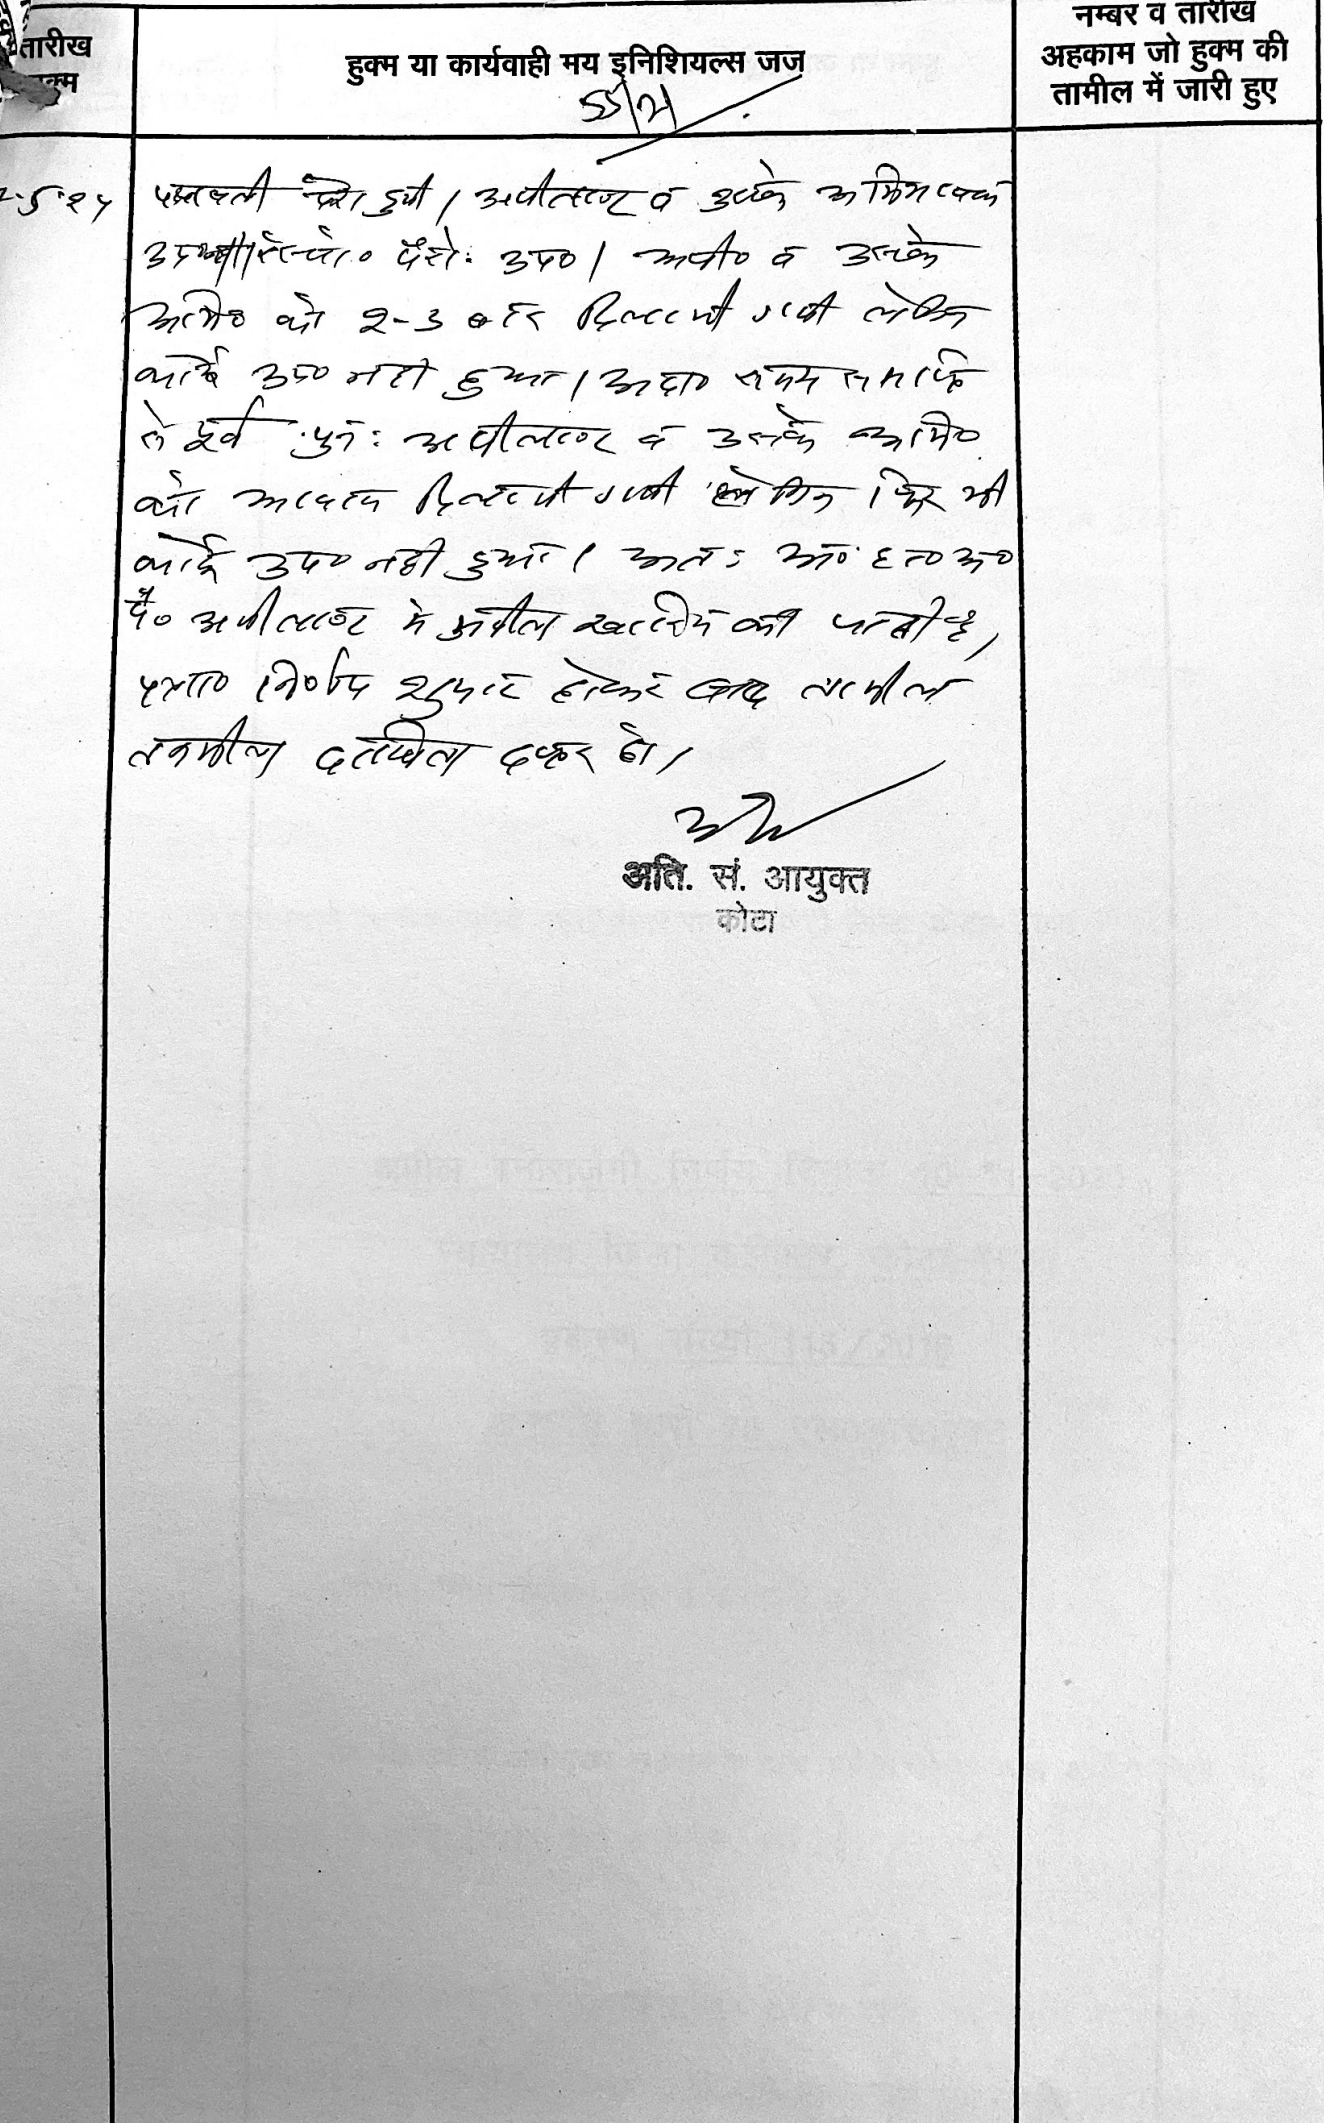 तारीख
हुक्म या कार्यवाही मय इनिशियल्स जज
नम्बर व तारीख
अहकाम जो हुक्म की
तामील में जारी हुए
पत्रावली पेश हुयी। अपीलाण्ट व उनके अभिभाषक
उप० । अपी० व उनके
अभि० को 2-3 बार दिलवायी गयी लेकिन
कोई उप० नही हुआ। अदा० समय समाप्ति
से पूर्व पुनः अपीलाण्ट व उनके अभि०
को आवाज दिलवायी गयी लेकिन फिर भी
कोई उप० नही हुआ। अतः अ० ह० अ०
पै० अपीलाण्ट में अपील खारिज की जाती है,
पत्रा० निर्णय शुमार होकर बाद तामील
तकमील दाखिल दफ्तर हो।
अति. सं. आयुक्त
कोटा